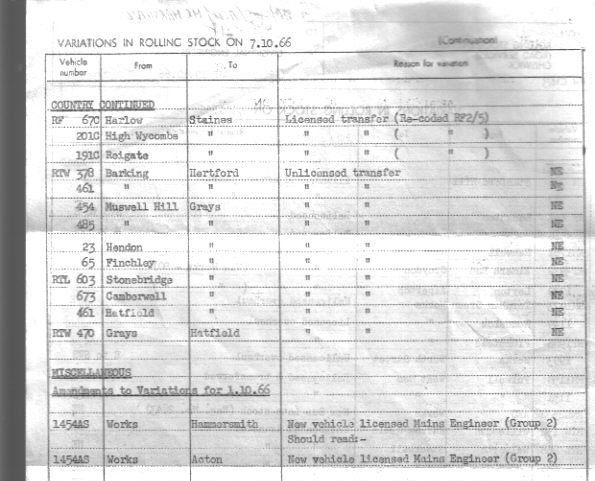 VARIATIONS IN ROLLING STOCK ON 7.10.66 (Continuation)
Vehicle number From To Reason for variation
COUNTRY CONTINUED
RF 67C Harlow Staines Licensed transfer (Re-coded RF2/5)
201C High Wycombe " " " ( " )
191C Reigate " " " ( " )
RTW 378 Barking Hertford Unlicensed transfer NE
461 " " " " NE
454 Muswell Hill Grays " " NE
485 " " " " NE
23 Hendon " " " NE
65 Finchley " " " NE
RTL 603 Stonebridge " " " NE
673 Camberwell " " " NE
461 Hatfield " " " NE
RTW 470 Grays Hatfield " " NE
MISCELLANEOUS
Amendments to Variations for 1.10.66
1454AS Works Hammersmith New vehicle licensed Mains Engineer (Group 2)
Should read:-
1454AS Works Acton New vehicle licensed Mains Engineer (Group 2)